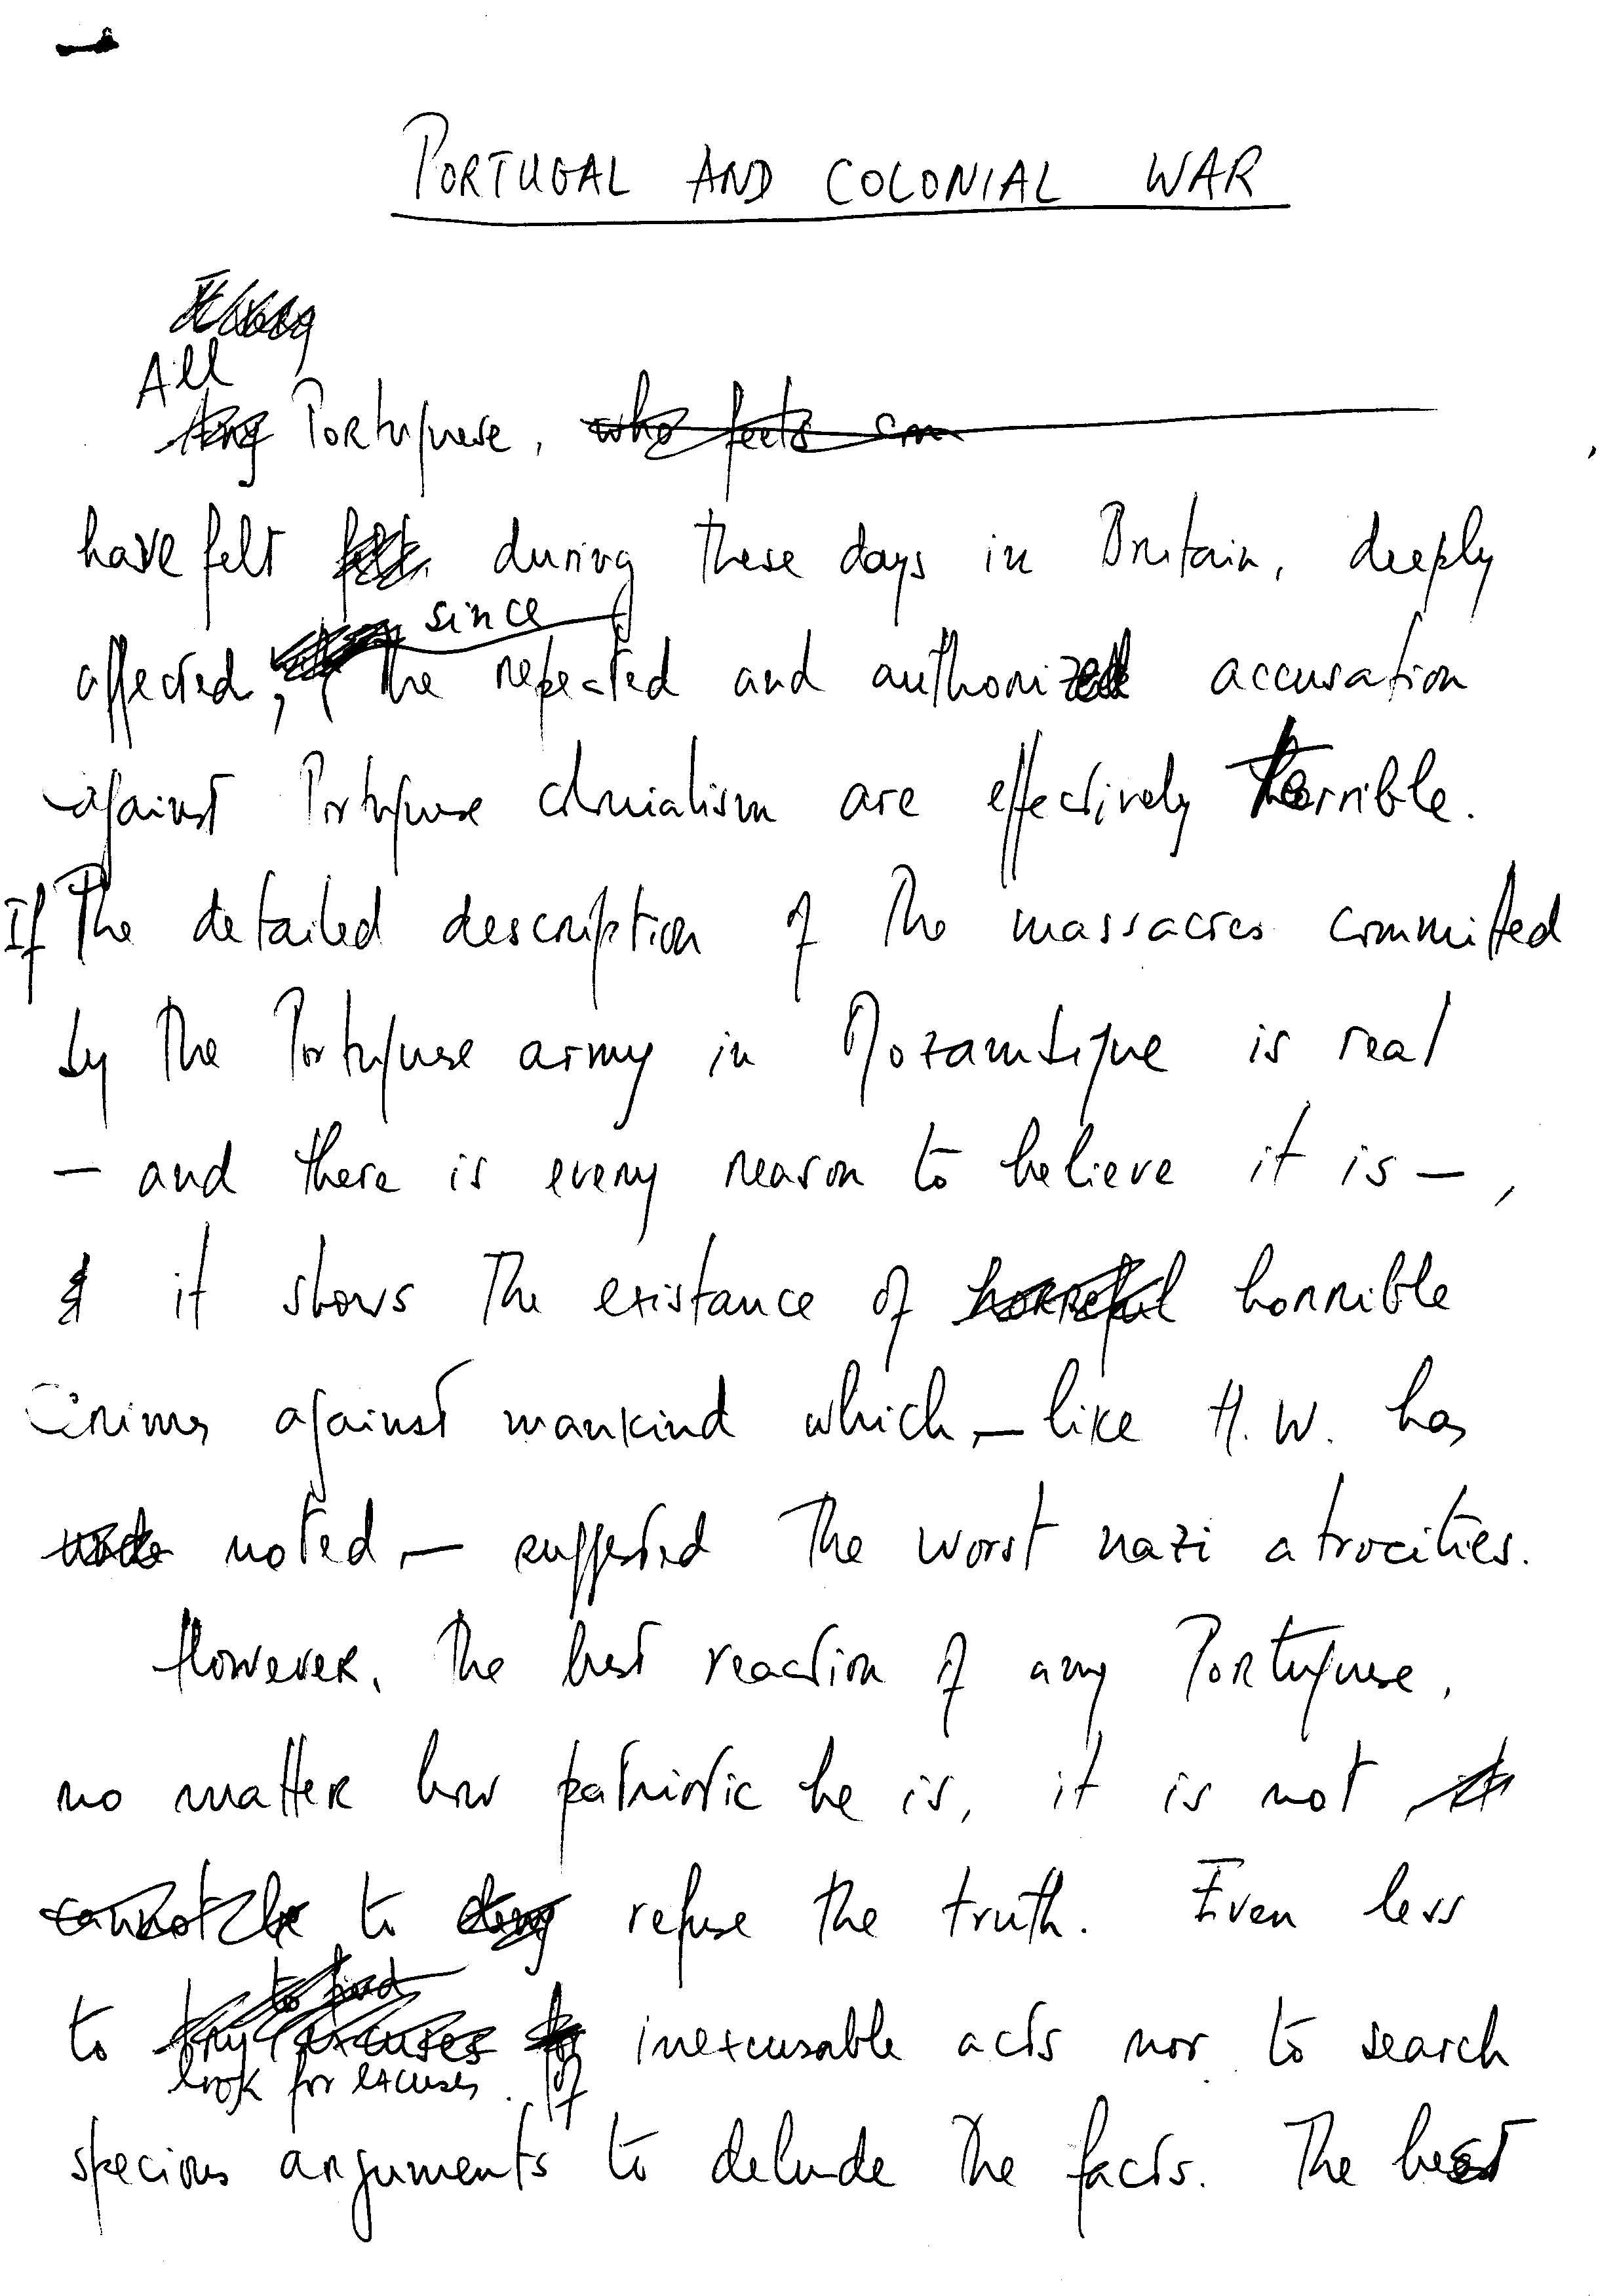 PORTUGAL AND COLONIAL WAR
All
Portuguese, who feels
have felt felt during these days in Britain, deeply
since
affected, the repeated and authorized accusation
against Portuguese colonialism are effectively terrible.
If the detailed description of the massacres committed
by the Portuguese army in Mozambique is real
– and there is every reason to believe it is – ,
it shows the existance of horrible
Crimes against mankind which, – like H. W. has
noted, – suggested the worst nazi atrocities.
However, the best reaction of any Portuguese,
no matter how patriotic he is, it is not it
cannot be to deny refuse the truth. Even less
to find
to try excuses for inexcusable acts nor to search
look for excuses of
specious arguments to delude the facts. The best